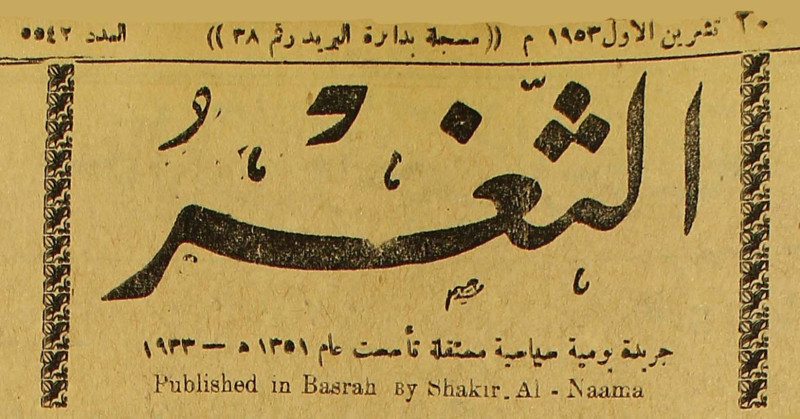 ٢٠ تشرين الاول ١٩٥٣ م ((مسجلة بدائرة البريد رقم ٣٨)) العدد ٥٥٤٢
الثَّغْرُ
جريدة يومية سياسية مستقلة تأسست عام ١٣٥١ ه — ١٩٣٣
Published in Basrah By Shakir. Al - Naama